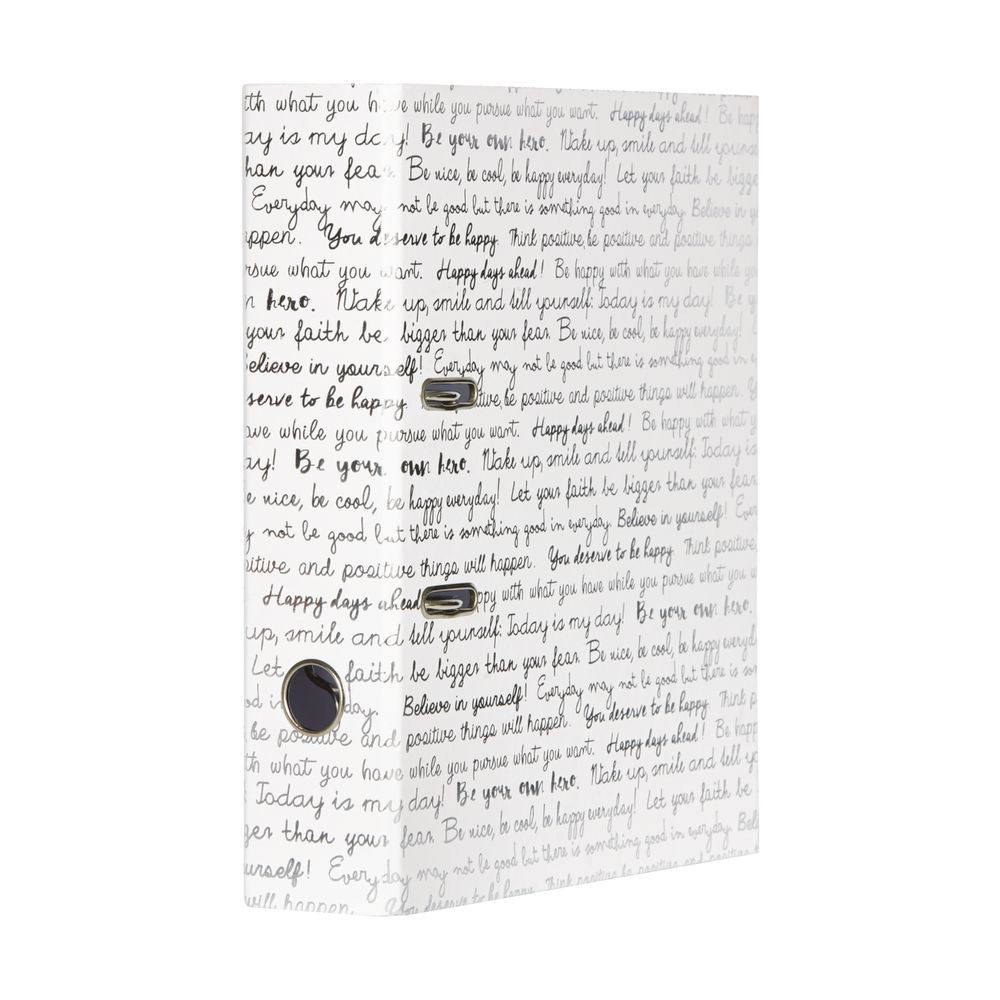 ith what you have while you pursue what you want. Happy days ahead! Be happ
ay is my day! Be your own hero. Wake up, smile and tell yourse
han your fear Be nice, be cool, be happy everyday! Let your faith be bigge
Everyday may not be good but there is something good in everyday. Believe in y
ppen. You deserve to be happy. Think positive, be positive and positive things
rsue what you want. Happy days ahead! Be happy with what you have while yo
n hero. Wake up, smile and tell yourself: Today is my day! Be yo
your faith be bigger than your fear. Be nice, be cool, be happy everyday!
elieve in yourself! Everyday may not be good but there is something good in
serve to be happy. itive, be positive and positive things will happen. Y
ave while you pursue what you want. Happy days ahead! Be happy with what y
ay! Be your own hero. Wake up, smile and tell yourself: Today is
e nice, be cool, be happy everyday! Let your faith be bigger than your fear.
y not be good but there is something good in everyday. Believe in yourself! Ever
sitive and positive things will happen. You deserve to be happy. Think positive,
Happy days ahead ppy with what you have while you pursue what you w
up, smile and tell yourself: Today is my day! Be your own hero.
Let faith be bigger than your fear. Be nice, be cool, be happy everyday!
od in day. Believe in yourself! Everyday may not be good but there is som
be positive and positive things will happen. You deserve to be happy. Think p
th what you have while you pursue what you want. Happy days ahead! Be hap
Today is my day! Be your own hero. Wake up, smile and tell yo
ger than your fear. Be nice, be cool, be happy everyday! Let your faith be
urself! Everyday may not be good but there is something good in everyday. Beli
will happen. You deserve to be happy. Think positive, be positive and posit